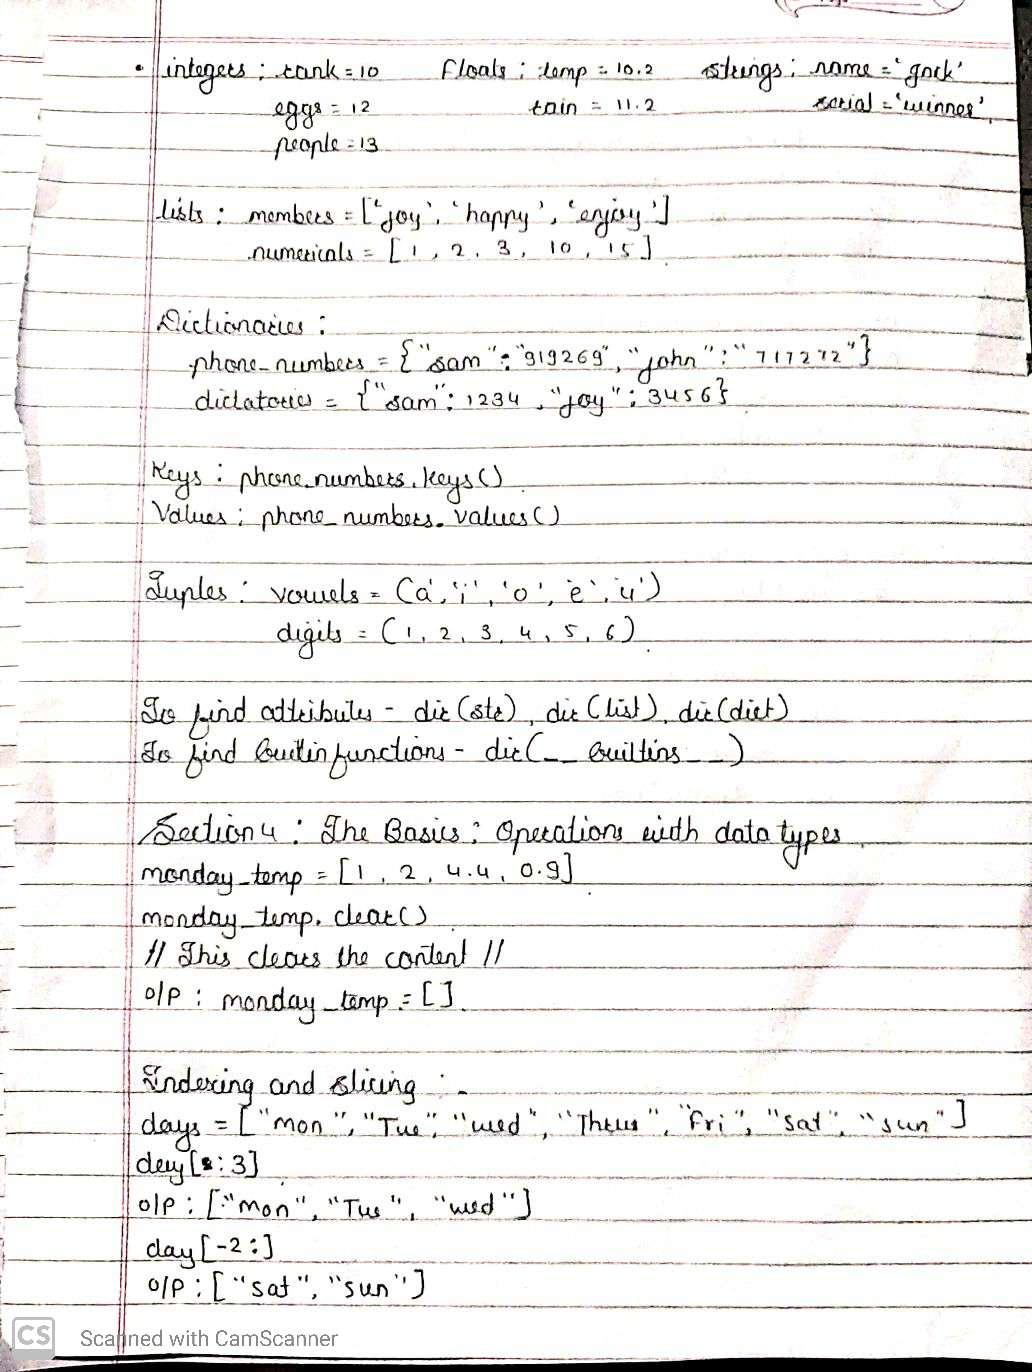 • integers : rank = 10 Floats : temp = 10.2 strings : name = 'gock'
eggs = 12 rain = 11.2 serial = 'winner',
people = 13
lists : members = ['joy', 'happy', 'enjoy']
numericals = [1, 2, 3, 10, 15]
Dictionaries :
phone_numbers = {"sam" : "919269", "john" : "717272"}
dictatories = {"sam" : 1234, "joy" : 3456}
Keys : phone_numbers.keys()
Values : phone_numbers.values()
Tuples : vowels = ('a', 'i', 'o', 'e', 'u')
digits = (1, 2, 3, 4, 5, 6)
To find attributes - dir(str), dir(list), dir(dict)
To find builtin functions - dir(__builtins__)
Section 4 : The Basics : Operations with data types
monday_temp = [1, 2, 4.4, 0.9]
monday_temp.clear()
// This clears the content //
o/p : monday_temp = [].
Indexing and slicing :-
days = ["mon", "Tue", "wed", "Thrus", "Fri", "sat", "sun"]
day[:3]
o/p : ["mon", "Tue", "wed"]
day[-2:]
o/p : ["sat", "sun"]
CS Scanned with CamScanner